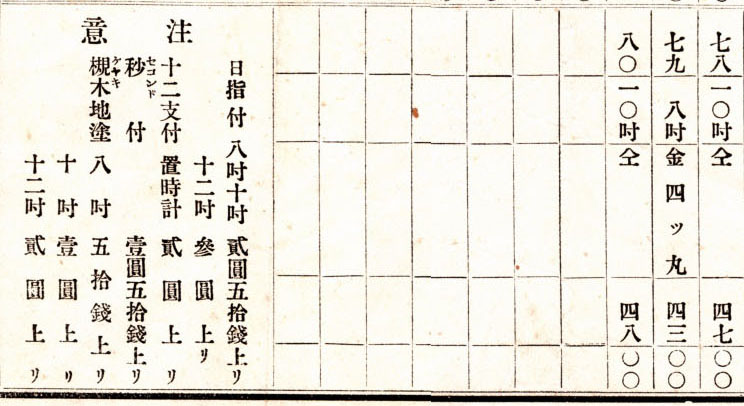 七八 一〇吋 仝 四七〇〇
七九 八吋 金四ッ丸 四三〇〇
八〇 一〇吋 仝 四八〇〇
注意
日指付 八吋十吋 貳圓五拾錢上リ
十二吋 參圓上リ
十二支付 置時計 貳圓上リ
秒付 セコンド 壹圓五拾錢上リ
槻木地塗 ケヤキ 八吋 五拾錢上リ
十吋 壹圓上リ
十二吋 貳圓上リ